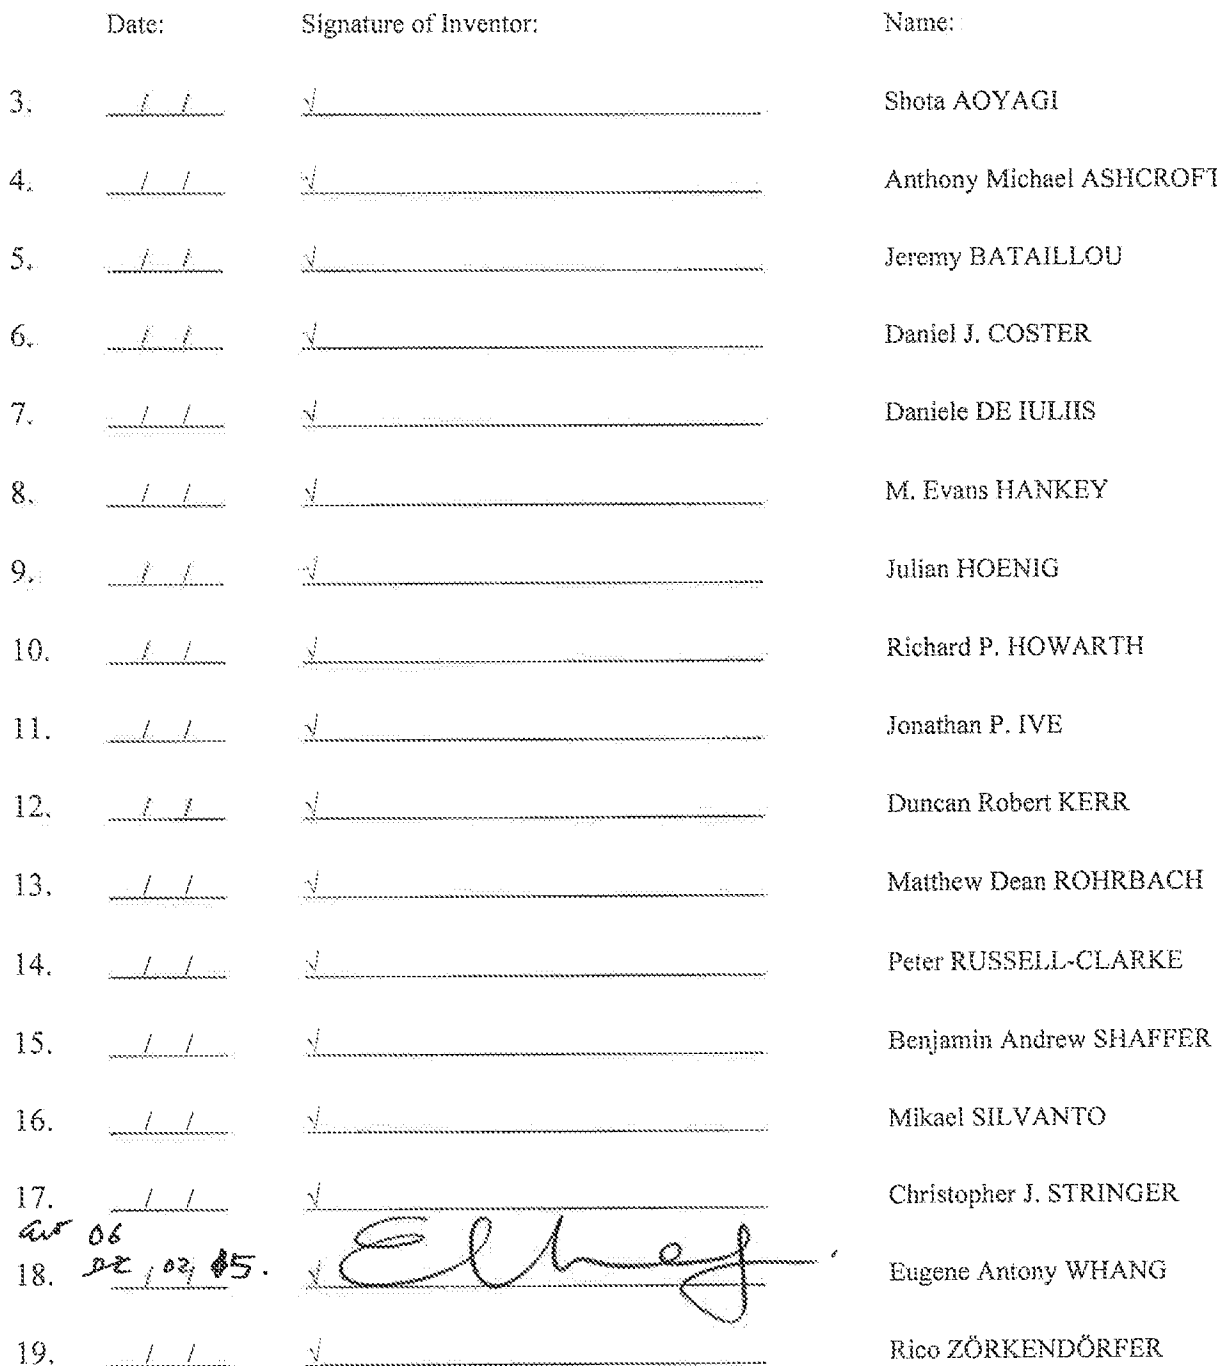 Date: Signature of Inventor: Name:
3. / / √ Shota AOYAGI
4. / / √ Anthony Michael ASHCROFT
5. / / √ Jeremy BATAILLOU
6. / / √ Daniel J. COSTER
7. / / √ Daniele DE IULIIS
8. / / √ M. Evans HANKEY
9. / / √ Julian HOENIG
10. / / √ Richard P. HOWARTH
11. / / √ Jonathan P. IVE
12. / / √ Duncan Robert KERR
13. / / √ Matthew Dean ROHRBACH
14. / / √ Peter RUSSELL-CLARKE
15. / / √ Benjamin Andrew SHAFFER
16. / / √ Mikael SILVANTO
17. / / √ Christopher J. STRINGER
06
18. / 02 / 15. √ Eugene Antony WHANG
19. / / √ Rico ZÖRKENDÖRFER